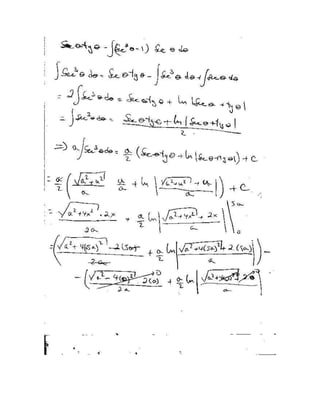 Sec θ tg θ - ∫(Sec² θ - 1) Sec θ dθ
∫Sec³ θ dθ = Sec θ tg θ - ∫Sec³ θ dθ + ∫Sec θ dθ
= 2∫Sec³ θ dθ = Sec θ tg θ + ln |Sec θ + tg θ|
= ∫Sec³ θ dθ = (Sec θ tg θ + ln |Sec θ + tg θ|) / 2
=> a∫Sec³ θ dθ = a/2 (Sec θ tg θ + ln |Sec θ + tg θ|) + C
= a/2 (√(a²+u²)/a · u/a + ln |(√(a²+u²) + u)/a|) + C
= (√(a²+4x²) · 2x)/2a + a/2 ln |(√(a²+4x²) + 2x)/a| |₀^5a
= (√(a²+4(5a)²) · 2(5a)/2a + a/2 ln |(√(a²+4(5a)²) + 2(5a))/a|) -
- (√(a²-4(0)²) 2(0)/2a + a/2 ln |√(a²+4(0)²) + 2(0)/a|